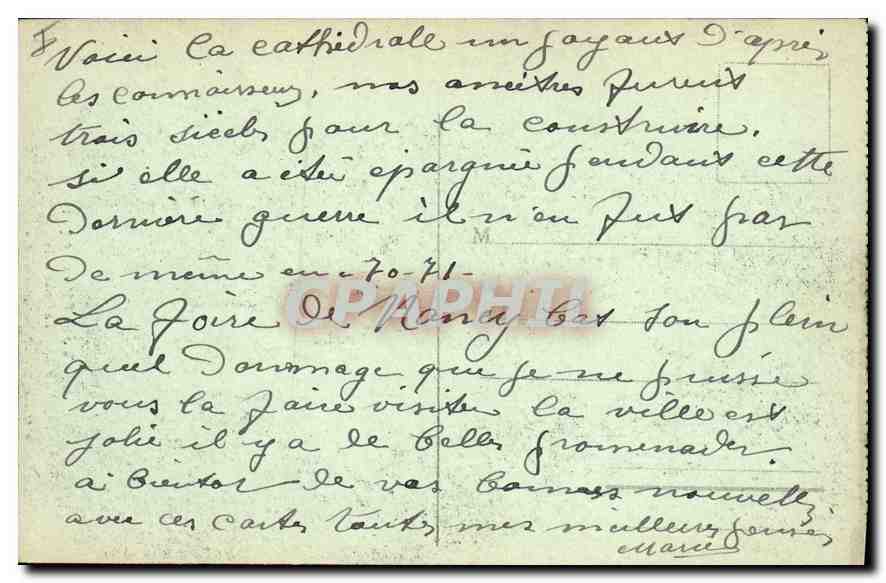 I Voici la cathédrale un joyaux d'après
les connaisseurs, nos ancêtres furent
trois siècles pour la construire.
si elle a été epargnée pendant cette
dernière guerre il n'en fut pas
M
de même en 70-71-
CPAPHIL
La foire de Nancy bas son plein
quel dommage que je ne puisse
vous la faire visiter la ville est
jolie il y a de belles promenades.
à bientot de vos bonnes nouvelles
avec ces cartes toutes mes meilleures pensées
Marie